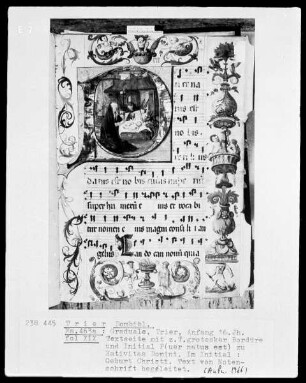 er na
tus est
no bis
datus est no bis cuius impe ri
super hu merū e ius et voca bi
tur nomen e ius magni consi li i an
gelus Can do can nouū quia
298 445
Trier Dombibl.
Graduale, Trier, Anfang 16.Jh.
Fol XII Textseite mit z.T.grotesker Bordüre
und Initial P(uer natus est) zu
Nativitas Domini. Im Initial :
Geburt Christi. Text von Noten-
schrift begleitet.